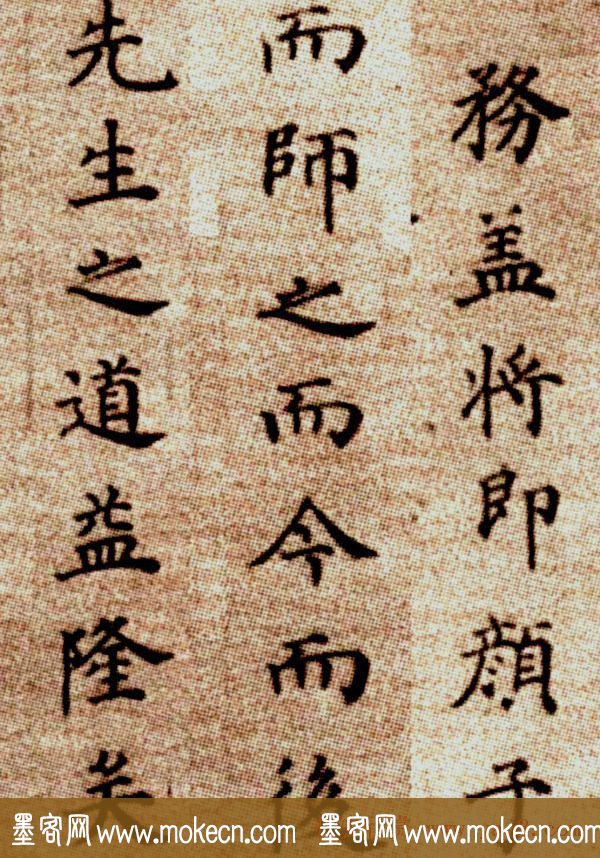 務盖将即顔子
而師之而今而後
先生之道益隆矣
墨客网 www.mokecn.com 墨客网 www.mokecn.com